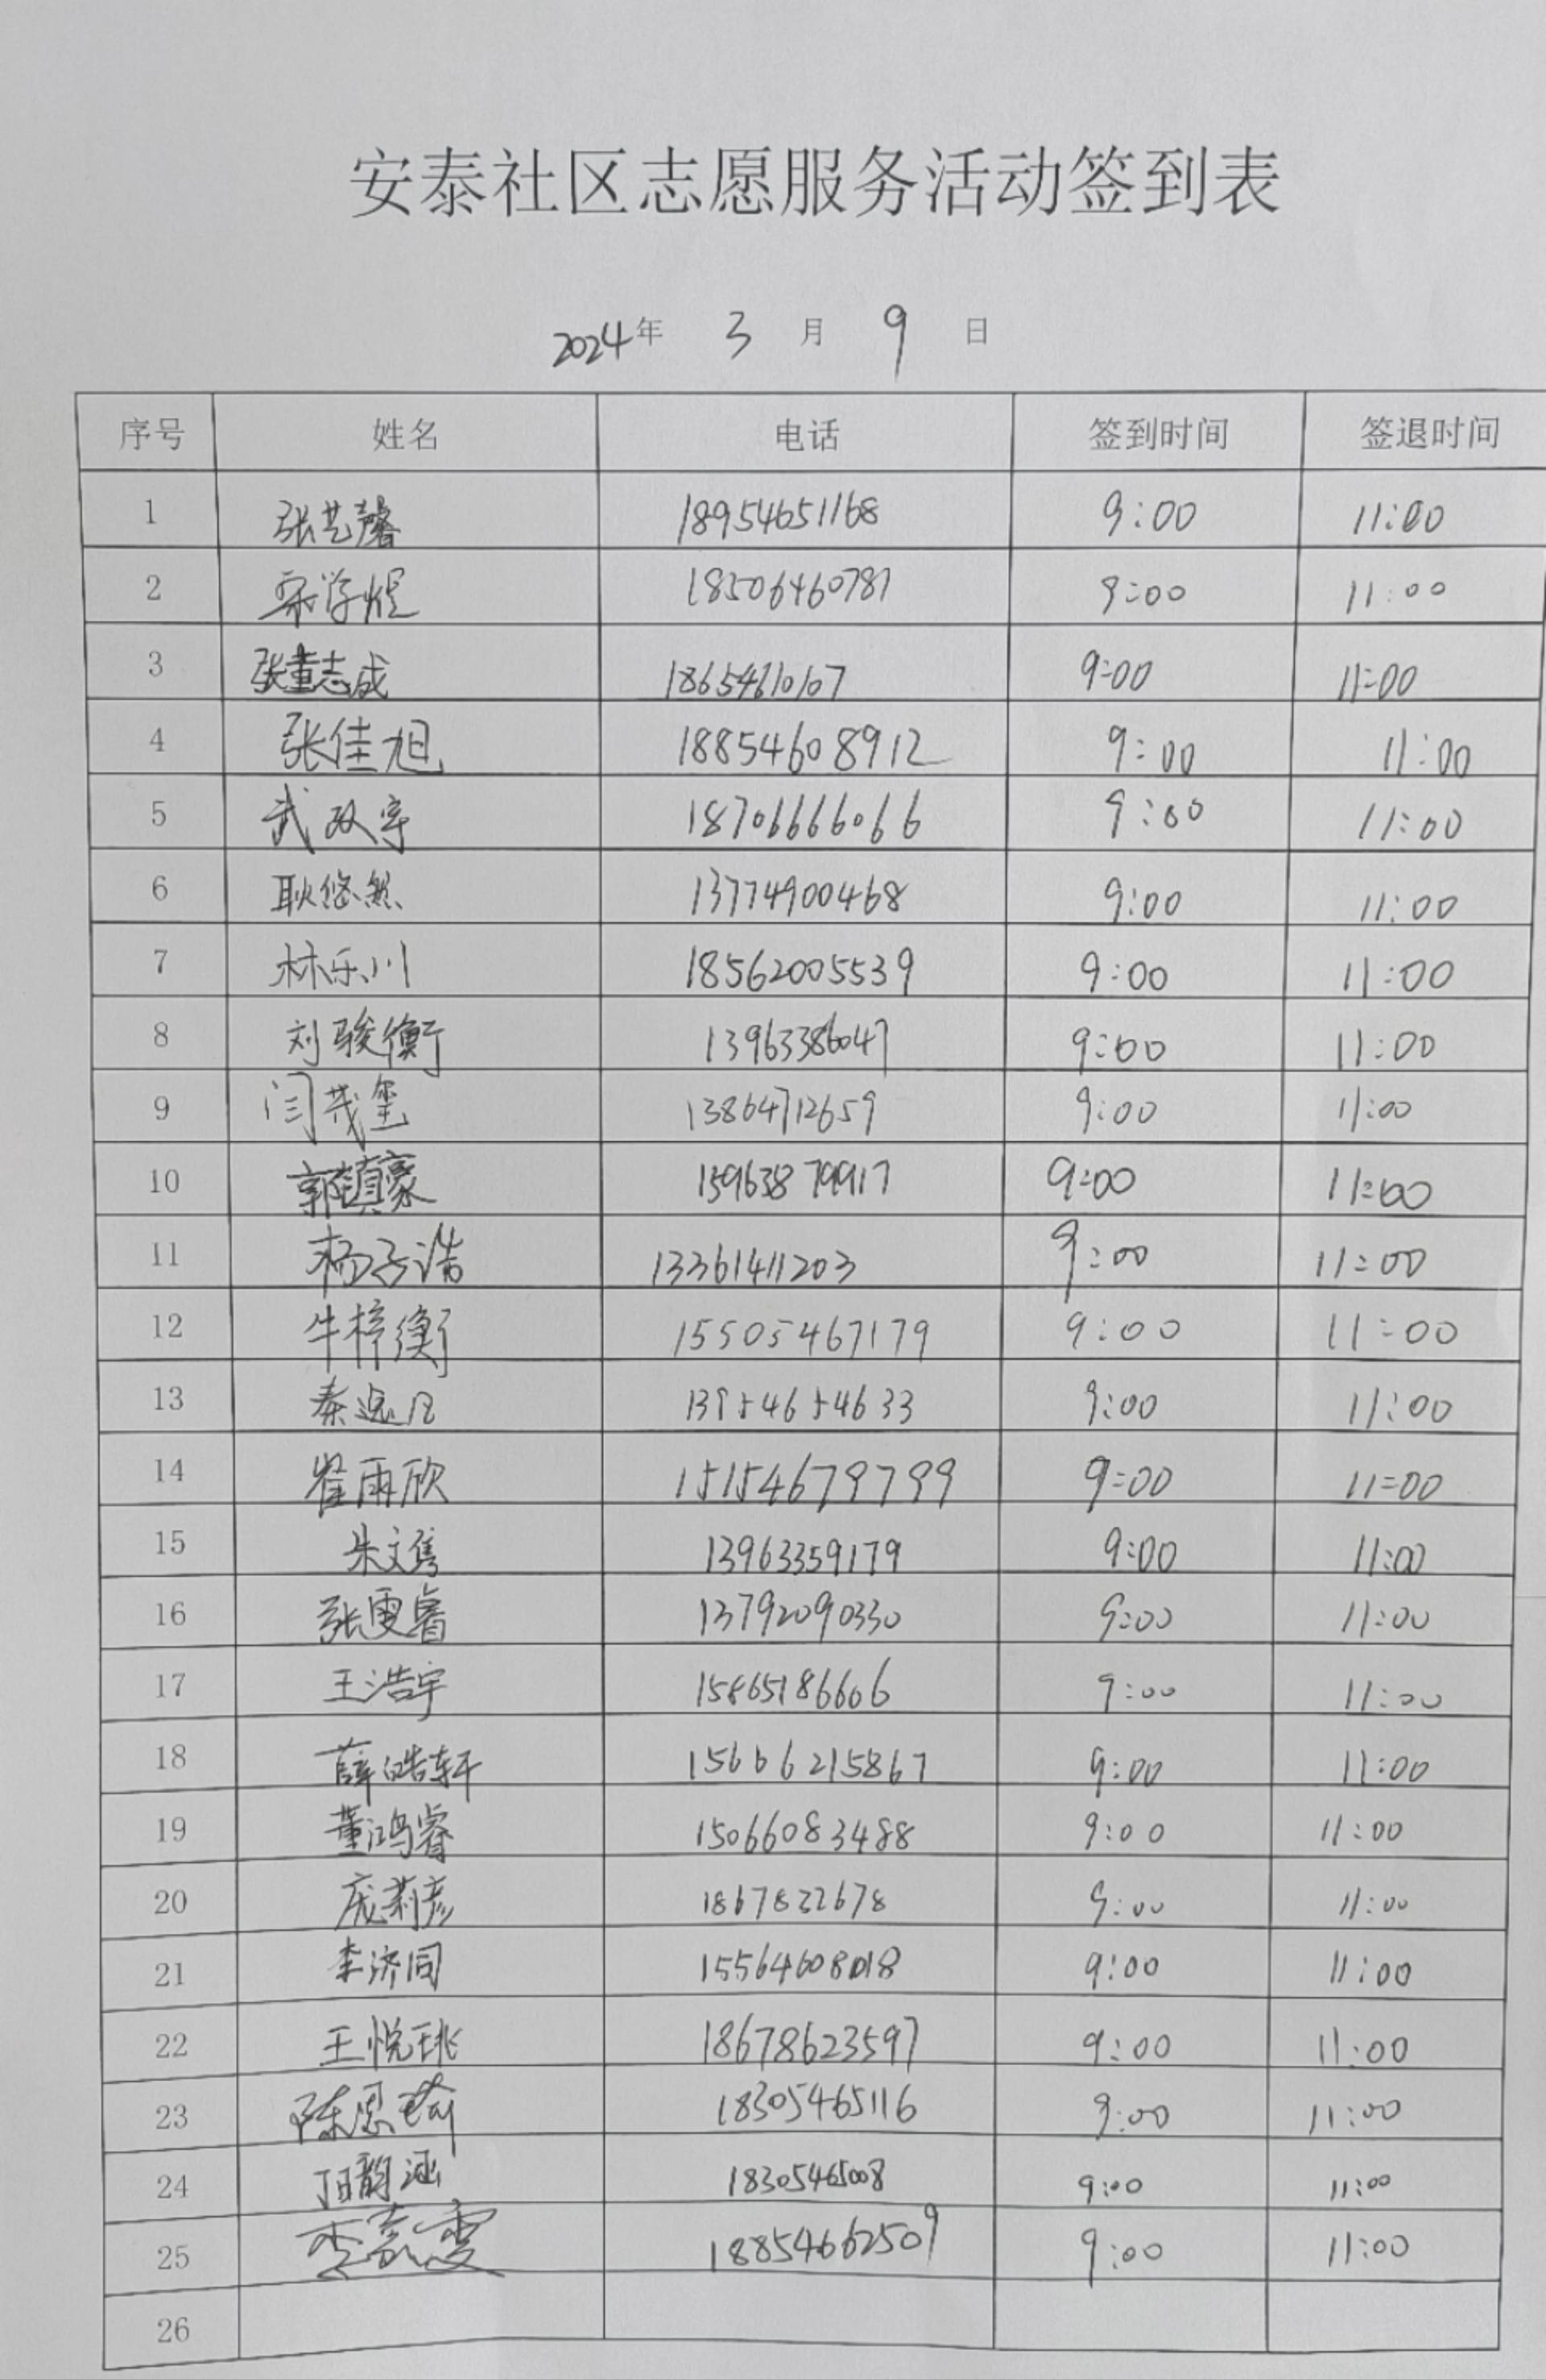 安泰社区志愿服务活动签到表
2024年 3 月 9 日
序号 姓名 电话 签到时间 签退时间
1 张艺馨 18954651168 9:00 11:00
2 宋学煜 18506460781 9:00 11:00
3 张董志成 18654610107 9:00 11:00
4 张佳旭 18854608912 9:00 11:00
5 武双宇 18706666066 9:00 11:00
6 耿悠然 13774900468 9:00 11:00
7 林乐川 18562005539 9:00 11:00
8 刘骏衡 13963386047 9:00 11:00
9 闫茂玺 13864712659 9:00 11:00
10 郭镇豪 15963879917 9:00 11:00
11 杨子浩 13361411203 9:00 11:00
12 牛梓衡 15505467179 9:00 11:00
13 秦逸凡 13954654633 9:00 11:00
14 崔雨欣 15154679799 9:00 11:00
15 朱文隽 13963359179 9:00 11:00
16 张雯睿 13792090330 9:00 11:00
17 王浩宇 15865186606 9:00 11:00
18 薛皓轩 15666215867 9:00 11:00
19 董鸿睿 15066083488 9:00 11:00
20 庞莉彦 1867822678 9:00 11:00
21 李济同 15564608018 9:00 11:00
22 王悦珧 18678623597 9:00 11:00
23 陈思瑜 18305465116 9:00 11:00
24 韵涵 18305465008 9:00 11:00
25 李嘉雯 18854662509 9:00 11:00
26